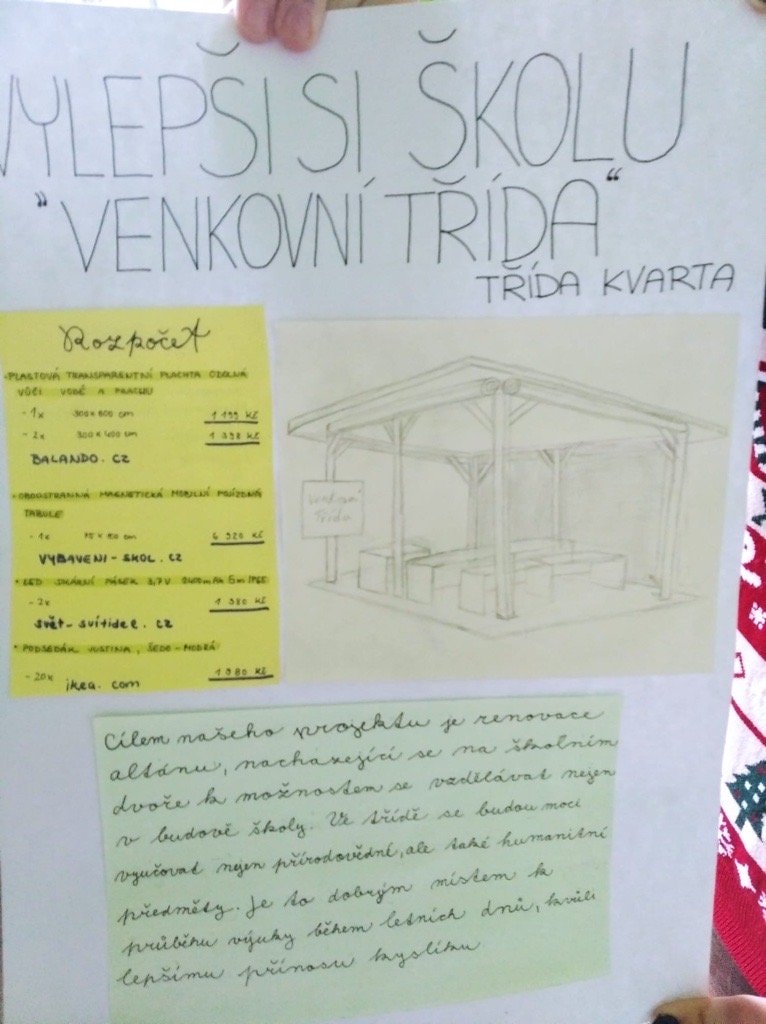 VYLEPŠI SI ŠKOLU
"VENKOVNÍ TŘÍDA"
TŘÍDA KVARTA
Rozpočet
• PLASTOVÁ TRANSPARENTNÍ PLACHTA ODOLNÁ
VŮČI VODĚ A PRACHU
- 1x 300 x 600 cm 1 199 Kč
- 2x 300 x 400 cm 1 398 Kč
BALANDO.CZ
• OBOUSTRANNÁ MAGNETICKÁ MOBILNÍ POJÍZDNÁ
TABULE
- 1x 6 920 Kč
VYBAVENI-SKOL.CZ
• LED SOLÁRNÍ PÁSEK 3,7V 5m
- 2x 1 380 Kč
svět-svítidel.cz
• PODSEDÁK JUSTINA, ŠEDO-MODRÁ
- 20x 1 980 Kč
ikea.com
Venkovní
Třída
Cílem našeho projektu je renovace
altánu, nacházející se na školním
dvoře k možnostem se vzdělávat nejen
v budově školy. Ve třídě se budou moci
vyučovat nejen přírodovědní, ale také humanitní
předměty. Je to dobrým místem k
průběhu výuky během letních dnů, kvůli
lepšímu přínosu kyslíku